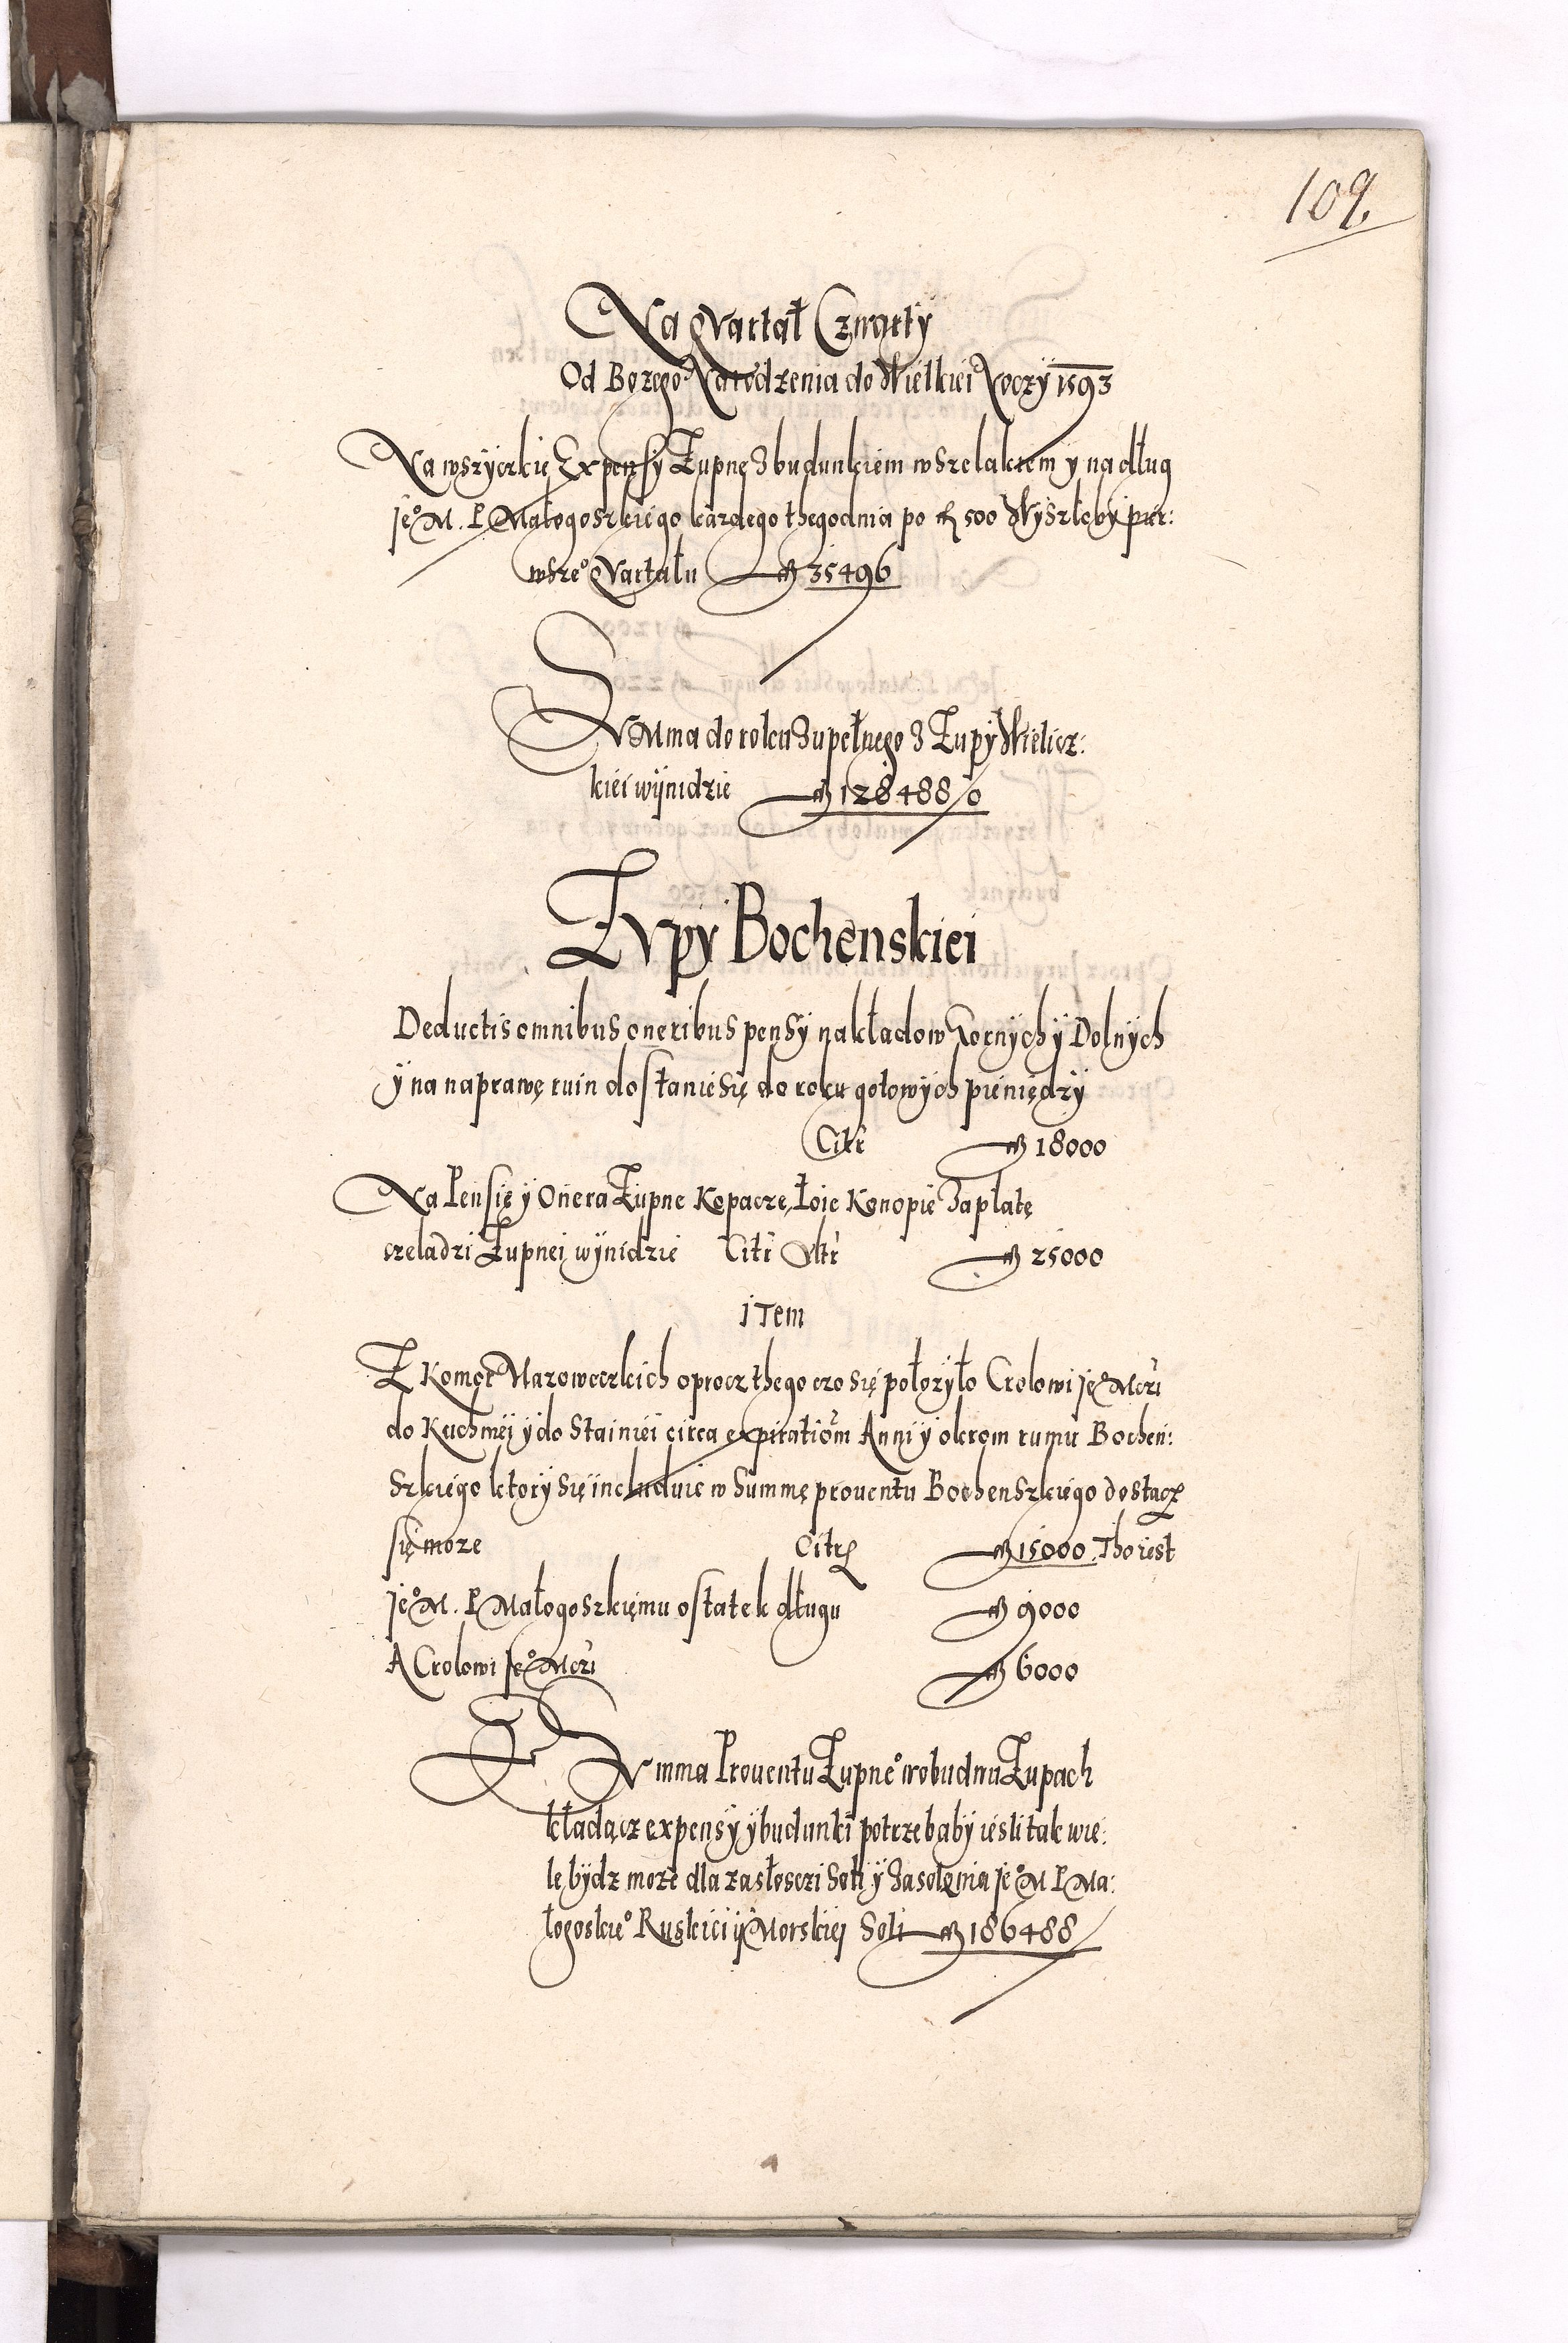 109.
Na Qvartał Czwarty
Od Bozego Narodzenia do Wielkiei Noczy 1593
Na wszyczkie Expensy Zupne z budunkiem wszelakiem y na dług
Je° M. P. Małogoszkiego kazdego thegodnia po fl 500 Wyszłoby pier:
wsze° Qvartału fl 35496
SVMma do roku zupełnego z Zupy Wielicz:
kiei wynidzie fl 128488/0
ZVpy Bochenskiei
Deductis omnibus oneribus pensy nakładow Gornych y Dolnych
y na naprawę ruin dostanie się do roku gotowych pieniędzy
Citr fl 18000
Na Pensię y Onera Zupne Kopacze, Łoie Konopie Zapłatę
czeladzi Zupnei wynidzie Citr Vltr fl 25000
iTem
Z Komor Mazoweczkich oprocz thego czo się połozyło Crolowi Je° Mczi
do Kuchniei y do Stainiei circa expiration̄m Anni y okrom rumu Bochen:
szkiego ktory się includuie w Summę prouentu Bochenszkiego dostacz
się moze Citr fl 15000 Tho iest
Je° M. P Małogoszkiemu ostatek długu fl 9000
A Crolowi Je° Mczi fl 6000
SVmma Prouentu Zupne° w obudwu Zupach
kładącz expensy y budunki potrzebaby iesli tak wie:
le bydz moze dla zasłosczi Soli y Zasolenia Je° M P Ma:
łogoskie° Ruskiei y Morskiei Soli fl 186488